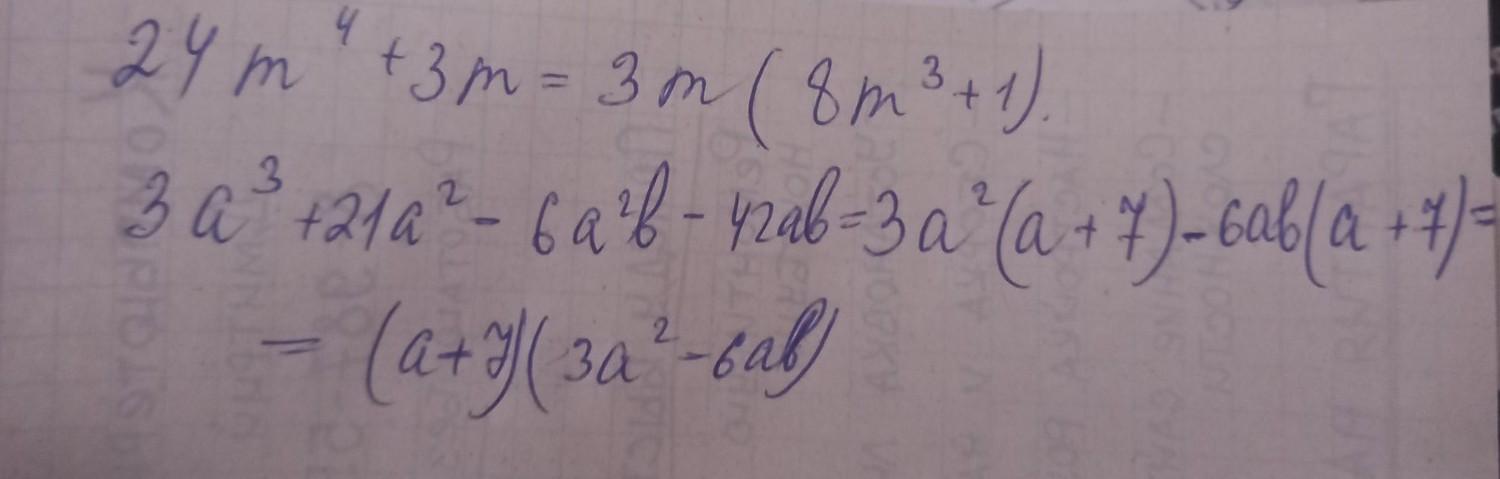 24m⁴+3m=3m(8m³+1).
3a³+21a²-6a²b-42ab=3a²(a+7)-6ab(a+7)=
=(a+7)(3a²-6ab)